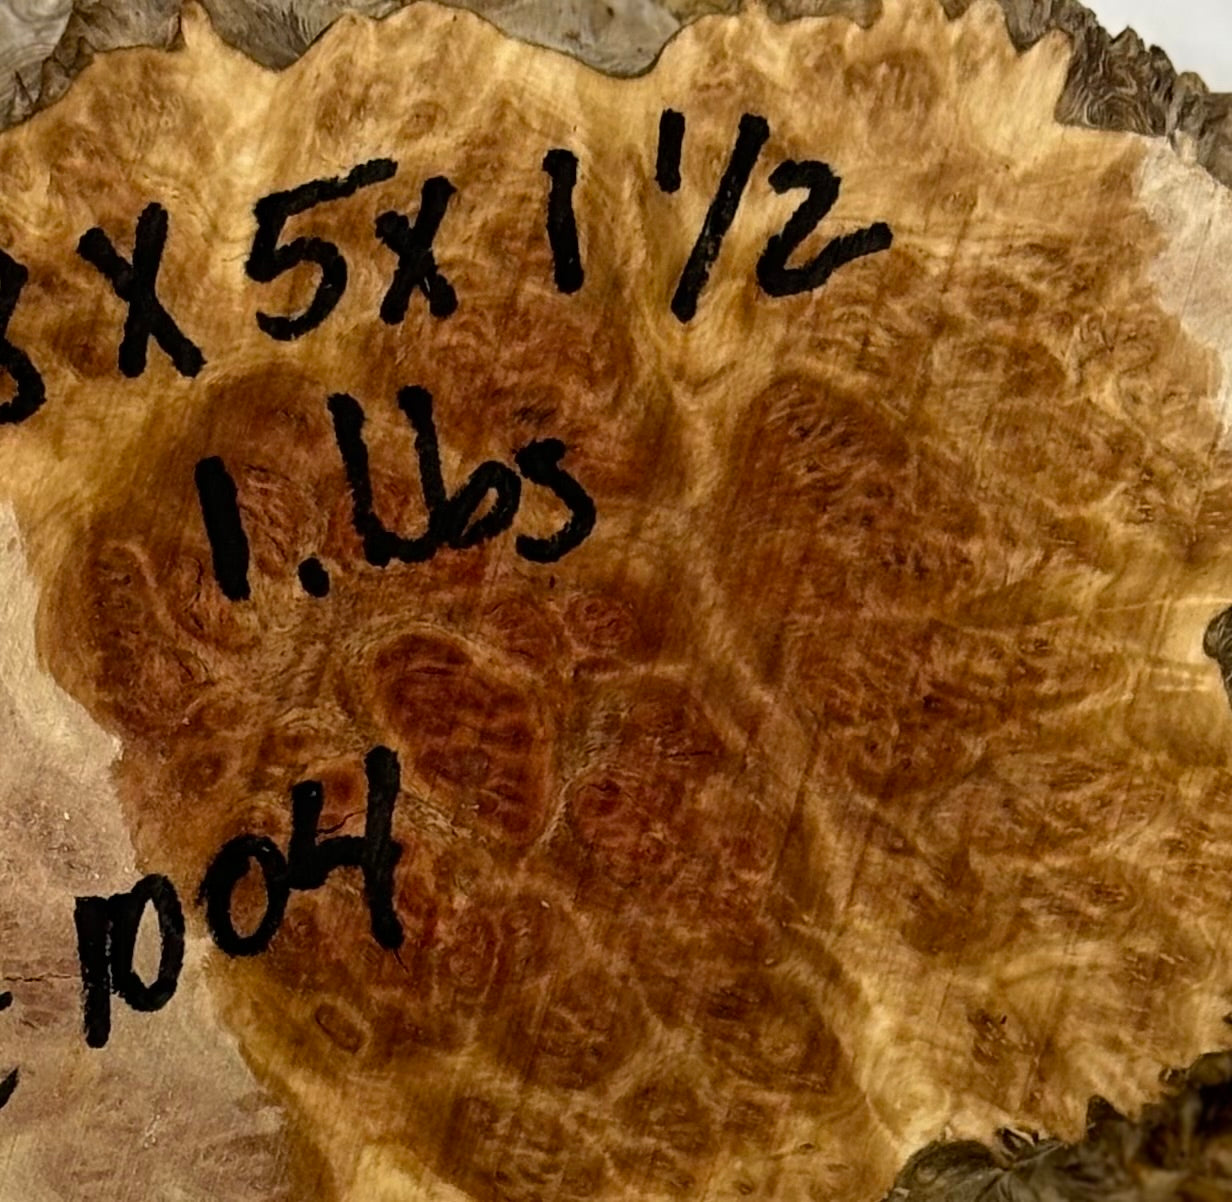 8 X 5 X 1 1/2
1.Lbs
p04